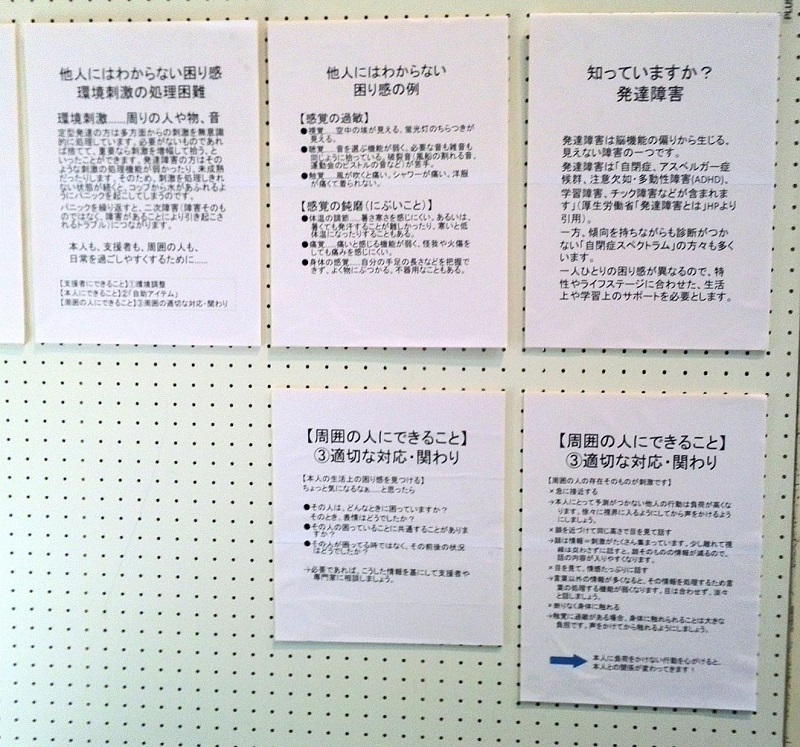 知っていますか？
発達障害
発達障害は脳機能の偏りから生じる、
見えない障害の一つです。
発達障害は「自閉症、アスペルガー症
候群、注意欠如・多動性障害(ADHD)、
学習障害、チック障害などが含まれま
す」(厚生労働省「発達障害とは」HPより
引用)。
一方、傾向を持ちながらも診断がつか
ない「自閉症スペクトラム」の方々も多く
います。
一人ひとりの困り感が異なるので、特
性やライフステージに合わせた、生活
上や学習上のサポートを必要とします。
他人にはわからない
困り感の例
【感覚の過敏】
●視覚……空中の埃が見える。蛍光灯のちらつきが
見える。
●聴覚……音を選ぶ機能が弱く、必要な音も雑音も
同じように拾っている。破裂音(風船の割れる音、
運動会のピストルの音など)が苦手。
●触覚……風が吹くと痛い。シャワーが痛い。洋服
が痛くて着られない。
【感覚の鈍磨(にぶいこと)】
●体温の調節……暑さ寒さを感じにくい。あるいは、
暑くても発汗することが難しかったり、寒いと低
体温になったりすることもある。
●痛覚……痛いと感じる機能が弱く、怪我や火傷を
しても痛みを感じにくい。
●身体の感覚……自分の手足の長さなどを把握で
きず、よく物にぶつかる。不器用なこともある。
他人にはわからない困り感
環境刺激の処理困難
環境刺激……周りの人や物、音
定型発達の方は多方面からの刺激を無意識
的に処理しています。必要がないものであれ
ば捨てて、重要なら刺激を増幅して拾う、と
いったことができます。発達障害の方はその
ような刺激の処理機能が弱かったり、未成熟
だったりします。そのため、刺激を処理しきれ
ない状態が続くと、コップから水があふれるよ
うにパニックを起こしてしまうのです。
パニックを繰り返すと、二次障害(障害そのも
のではなく、障害があることにより引き起こさ
れるトラブル)につながります。
本人も、支援者も、周囲の人も、
日常を過ごしやすくするために……
【支援者にできること】①環境調整
【本人にできること】②「自助アイテム」
【周囲の人にできること】③周囲の適切な対応・関わり
【周囲の人にできること】
③適切な対応・関わり
【本人の生活上の困り感を見つける】
ちょっと気になるなぁ……と思ったら
●その人は、どんなときに困っていますか？
そのとき、表情はどうでしたか？
●その人の困っていることに共通することがありま
すか？
●その人が困ってる時ではなく、その前後の状況
はどうでしたか？
→必要であれば、こうした情報を基にして支援者や
専門家に相談しましょう。
【周囲の人にできること】
③適切な対応・関わり
【周囲の人の存在そのものが刺激です】
×急に接近する
→本人にとって予測がつかない他人の行動は負荷が高くな
ります。徐々に視界に入るようにしてから声をかけるよう
にしましょう。
×顔を近づけて同じ高さで目を見て話す
→顔は情報＝刺激がたくさん集まっています。少し離れて視
線は交わさずに話すと、顔そのものの情報が減るので、
話の内容が入りやすくなります。
×目を見て、情感たっぷりに話す
→言葉以外の情報が多くなると、その情報を処理するため言
葉の処理する機能が弱くなります。目は合わせず、淡々
と話しましょう。
×断りなく身体に触れる
→触覚に過敏がある場合、身体に触れられることは大きな
負担です。声をかけてから触れるようにしましょう。
本人に負荷をかけない行動を心がけると、
本人との関係が変わってきます！
PLUS